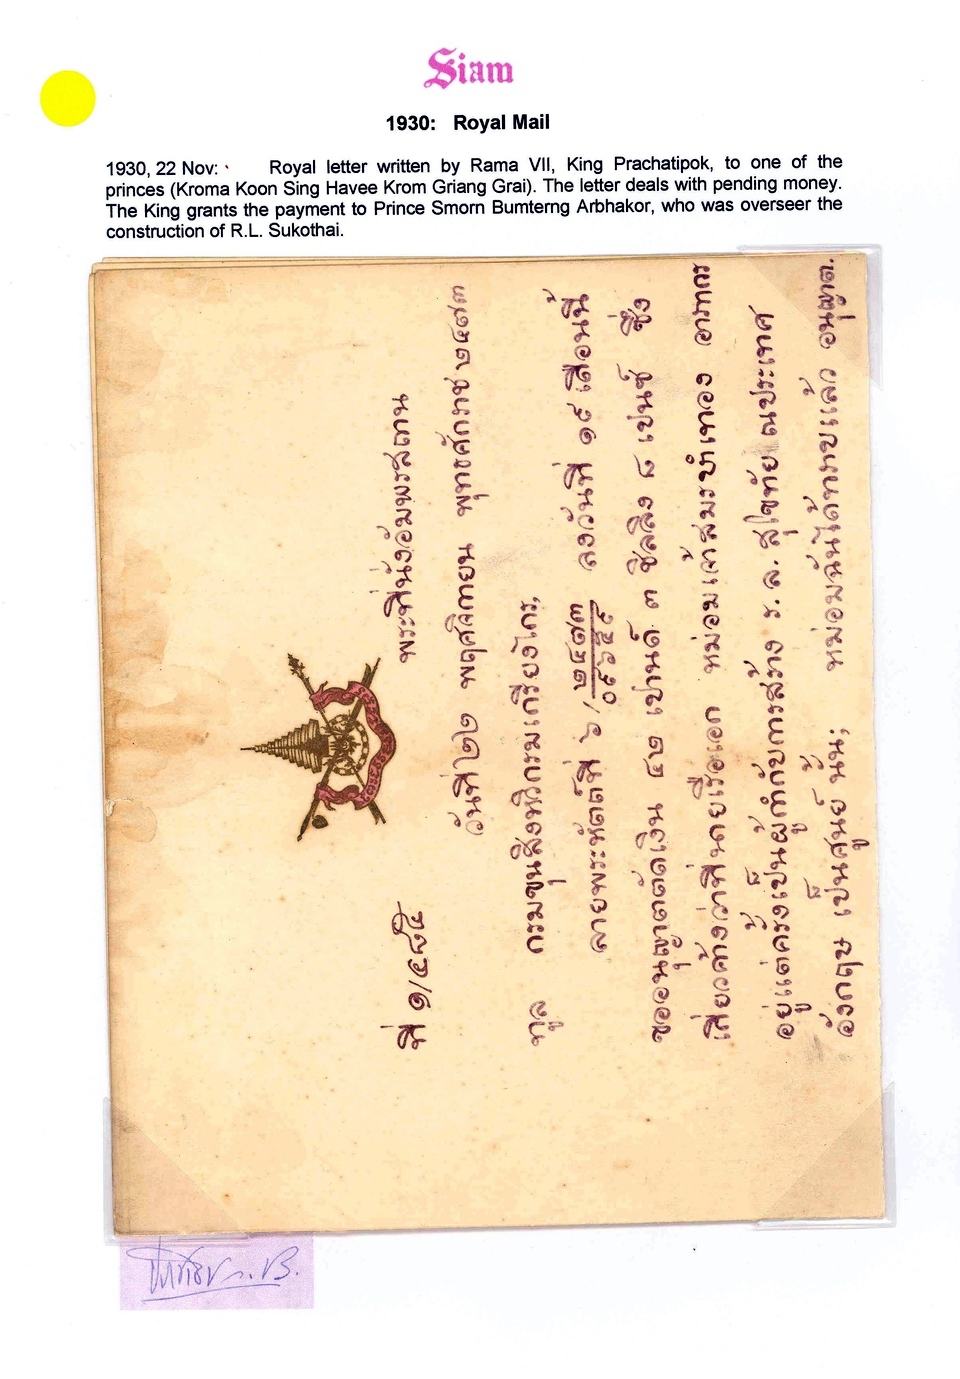 Siam
1930: Royal Mail
1930, 22 Nov: Royal letter written by Rama VII, King Prachatipok, to one of the
princes (Kroma Koon Sing Havee Krom Griang Grai). The letter deals with pending money.
The King grants the payment to Prince Smorn Bumterng Arbhakor, who was overseer the
construction of R.L. Sukothai.
ที่ ๑/๔๘๕
พระที่นั่งอัมพรสถาน
วันที่ ๒๒ พฤศจิกายน พุทธศักราช ๒๔๗๓
ทูล กรมขุนสิงหวิกรมเกรียงไกร,
ลายพระหัตถ์ที่ ๖, ๒๔๗๓ ลงวันที่ ๑๙ เดือนนี้
๐๙๖๕๙
ขออนุญาตตัดเงิน ๔๒ เปานด์ ๓ ชิลลิง ๘ เปนซ์ ซึ่ง
เสี่ยวค้างว่าที่นายเรือเอก หม่อมเจ้าสมรบำเทอง อาภากร
อยู่แต่ครั้งเป็นผู้กำกับการสร้าง ร.ล. สุโขทัย ณประเทศ
อังกฤษ เป็นศูนย์ นั้น; หม่อมฉันได้ทราบแล้ว อนุญาต.